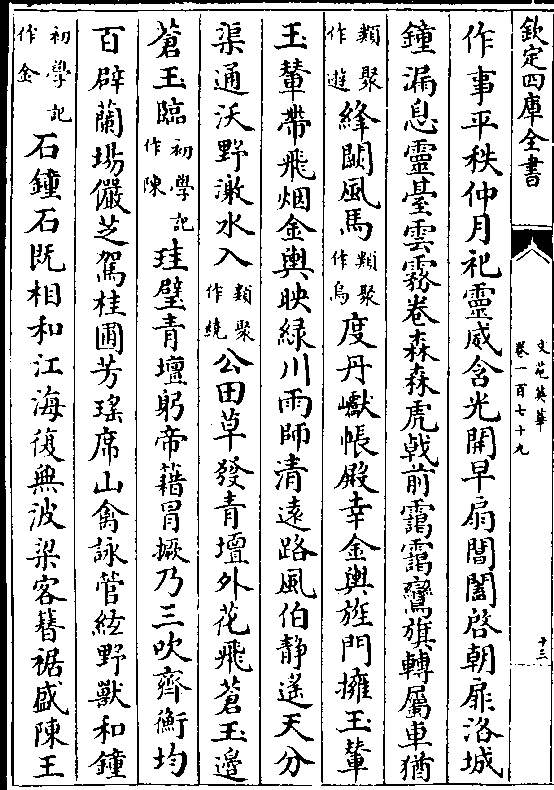 欽定四庫全書
文苑英華
卷一百七十九
十三
作事平秩仲月祀靈威含光開早扇閶闔啓朝扉洛城
鐘漏息靈臺雲霧卷森森虎戟前靄靄鸞旗轉屬車猶
類聚作遊絳闕風馬類聚作烏度丹巘帳殿幸金輿旌門擁玉輦
玉輦帶飛烟金輿映綠川雨師清遠路風伯静遙天分
渠通沃野激水入類聚作繞公田草發青壇外花飛蒼玉邊
蒼玉臨初學記作陳珪璧青壇躬帝藉冒橛乃三吹齊衡均
百辟蘭場儼芝駕桂圃芳瑤席山禽詠管絃野獸和鐘
初學記作金石鐘石既相和江海復無波梁客簪裾盛陳王